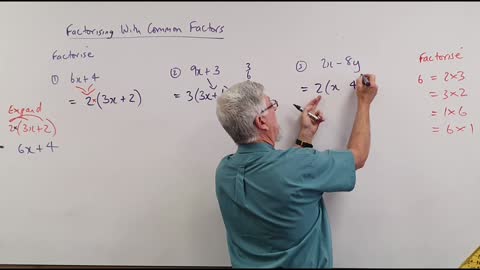 Factorising With Common Factors
Factorise
① 6x + 4
= 2×(3x + 2)
Expand
2×(3x + 2)
= 6x + 4
② 9x + 3
= 3(3x
3
6
③ 2x - 8y
= 2(x 4
Factorise
6 = 2×3
= 3×2
= 1×6
= 6×1